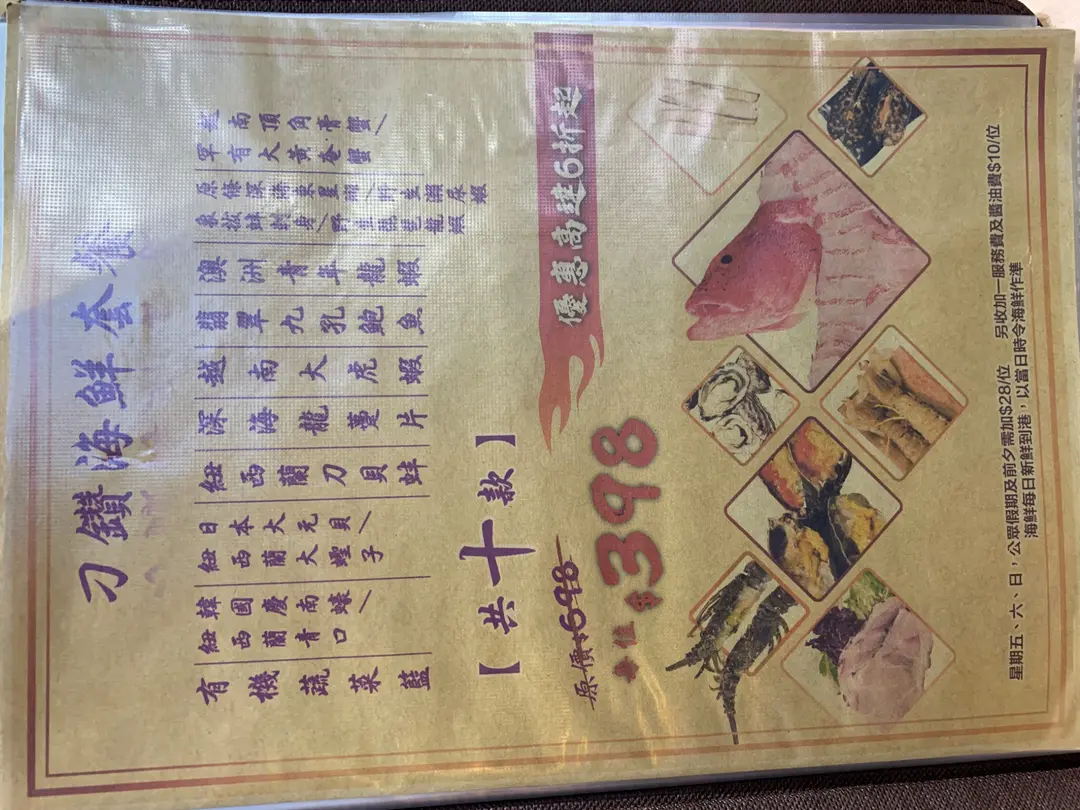 刁鑽海鮮套餐
越南頂角膏蟹／
罕有大黃奄蟹
原條深海東星斑／野生瀨尿蝦
象拔蚌刺身／野生琵琶龍蝦
澳洲青年龍蝦
翡翠九孔鮑魚
越南大虎蝦
深海龍躉片
紐西蘭刀貝蚌
日本大元貝／
紐西蘭大蟶子
韓國慶南蠔／
紐西蘭青口
有機蔬菜籃
【共十款】
優惠高達6折起
原價$698
每位$398
星期五、六、日，公眾假期及前夕需加$28/位 另收加一服務費及醬油費$10/位
海鮮每日新鮮到港，以當日時令海鮮作準